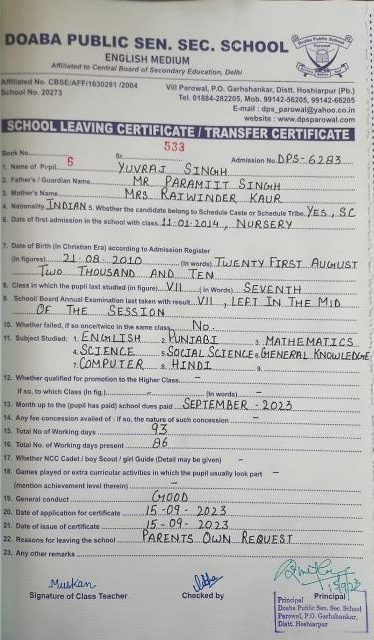 DOABA PUBLIC SEN. SEC. SCHOOL
ENGLISH MEDIUM
Affiliated to Central Board of Secondary Education, Delhi
Affiliated No. CBSE/AFF/1630281 /2004
School No. 20273
Vill Parowal, P.O. Garhshankar, Distt. Hoshiarpur (Pb.)
Tel. 01884-282205, Mob. 99142-56205, 99142-66205
E-mail : dps_parowal@yahoo.co.in
website : www.dpsparowal.com
SCHOOL LEAVING CERTIFICATE / TRANSFER CERTIFICATE
Book No. 5 Sr. 533 Admission No. DPS-6283
1. Name of Pupil YUVRAJ SINGH
2. Father's / Guardian Name MR PARAMJIT SINGH
3. Mother's Name MRS. RAJWINDER KAUR
4. Nationality INDIAN 5. Whether the candidate belong to Schedule Caste or Schedule Tribe YES, SC
6. Date of first admission in the school with class 11-01-2014, NURSERY
7. Date of Birth (in Christian Era) according to Admission Register
(in figures) 21-08-2010 (in words) TWENTY FIRST AUGUST
TWO THOUSAND AND TEN
8. Class in which the pupil last studied (in figure) VII (in words) SEVENTH
9. School Board Annual Examination last taken with result VII, LEFT IN THE MID
OF THE SESSION
10. Whether failed, if so once/twice in the same class No.
11. Subject Studied: 1. ENGLISH 2. PUNJABI 3. MATHEMATICS
4. SCIENCE 5. SOCIAL SCIENCE 6. GENERAL KNOWLEDGE
7. COMPUTER 8. HINDI 9.
12. Whether qualified for promotion to the Higher Class -
If so, to which Class (in fig.) - (in words) -
13. Month up to the (pupil has paid) school dues paid SEPTEMBER - 2023
14. Any fee concession availed of : if so, the nature of such concession -
15. Total No of Working days 93
16. Total No. of Working days present 86
17. Whether NCC Cadet / boy Scout / girl Guide (Detail may be given) -
18. Games played or extra curricular activities in which the pupil usually took part -
(mention achievement level therein) -
19. General conduct GOOD
20. Date of application for certificate 15-09-2023
21. Date of issue of certificate 15-09-2023
22. Reasons for leaving the school PARENTS OWN REQUEST
23. Any other remarks
Muskan
Signature of Class Teacher
Checked by
15/9/23
Principal
Principal
Doaba Public Sen. Sec. School
Parowal, P.O. Garhshankar,
Distt. Hoshiarpur